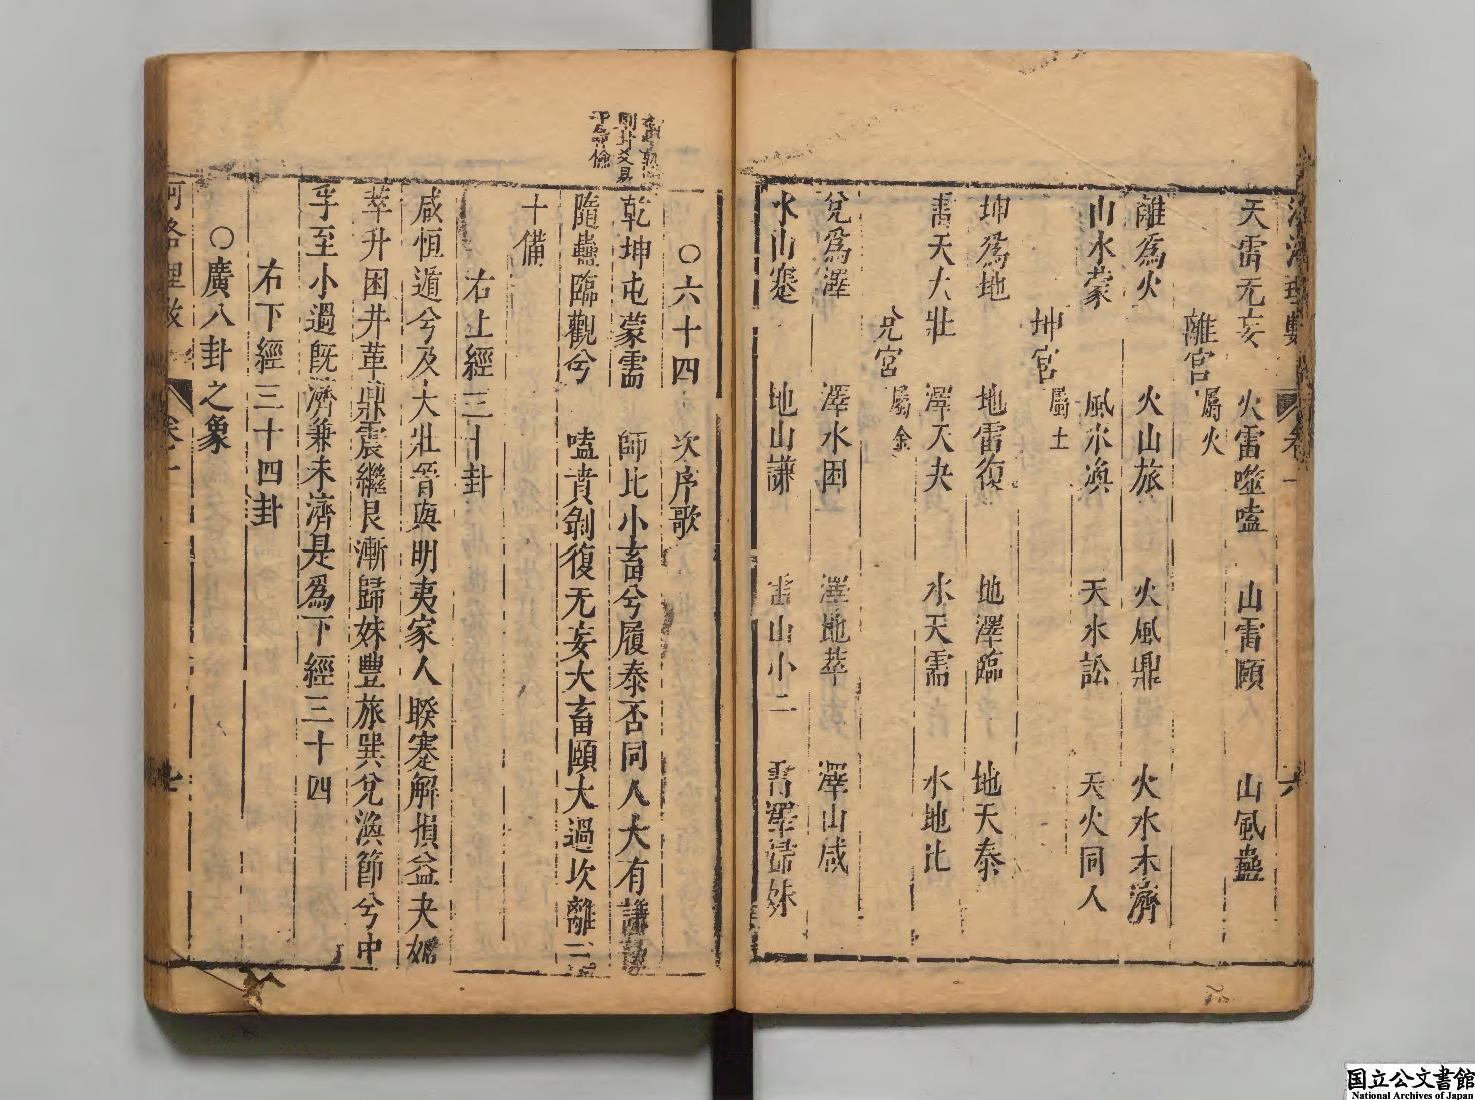 天雷无妄 火雷噬嗑 山雷頤 山風蠱
離宮 屬火
離爲火 火山旅 火風鼎 火水未濟
山水蒙 風水渙 天水訟 天火同人
坤宮 屬土
坤爲地 地雷復 地澤臨 地天泰
雷天大壯 澤天夬 水天需 水地比
兌宮 屬金
兌爲澤 澤水困 澤地萃 澤山咸
水山蹇 地山謙 雷山小 雷澤歸妹
○六十四 次序歌
乾坤屯蒙需 師比小畜兮履泰否同人大有謙
隨蠱臨觀兮 嗑賁剝復无妄大畜頤大過坎離三
十備
右上經三十卦
咸恒遁兮及大壯晉與明夷家人睽蹇解損益夬姤
萃升困井革鼎震繼艮漸歸妹豐旅巽兌渙節兮中
孚至小過旣濟兼未濟是爲下經三十四
右下經三十四卦
○廣八卦之象
七
国立公文書館
National Archives of Japan